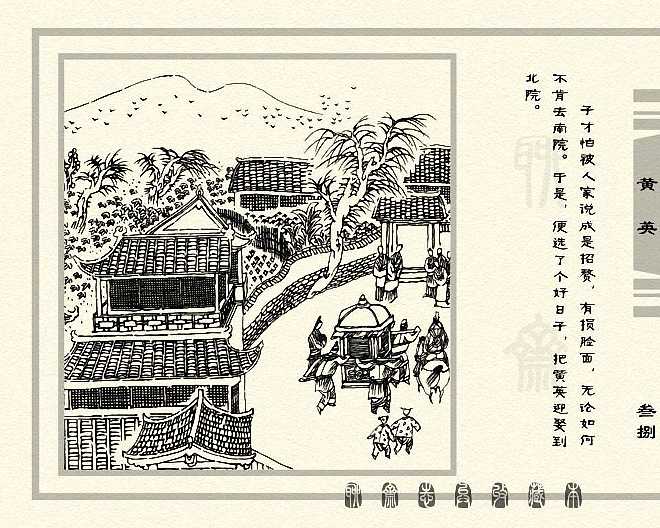 子才怕被人家说成是招赘，有损脸面，无论如何
不肯去南院。于是，便选了个好日子，把黄英迎娶到
北院。
黄英
叁捌
聊斋志异收藏本